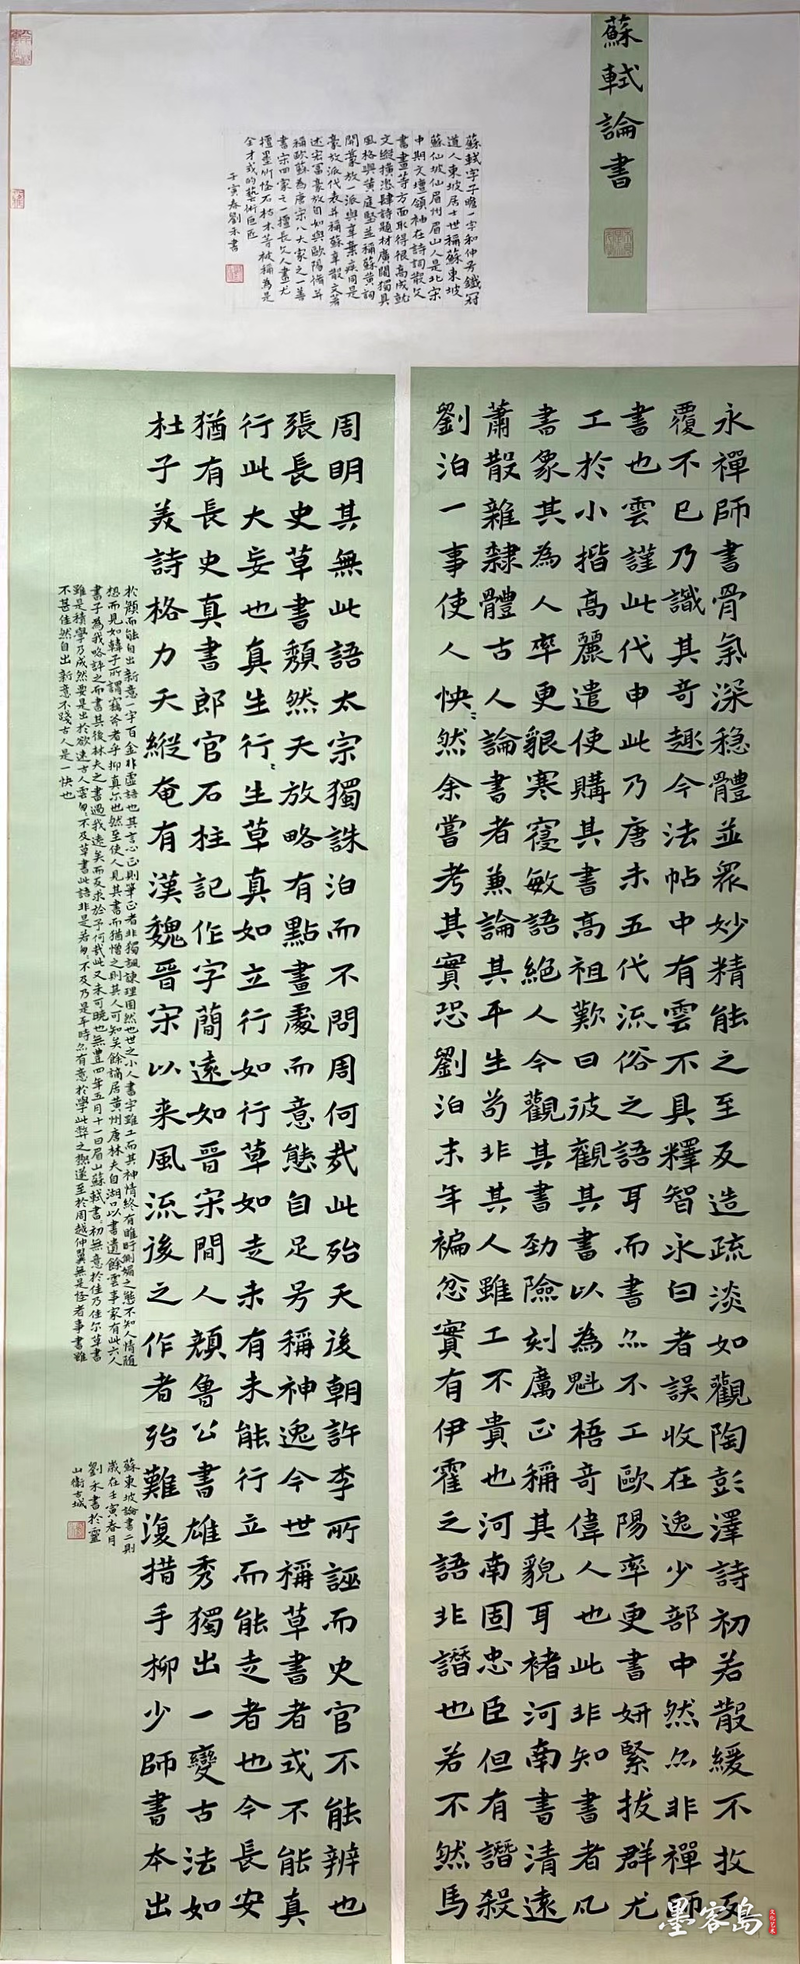 蘇軾論書
蘇軾字子瞻一字和仲号鐵冠
道人東坡居士世稱蘇東坡
蘇仙坡仙眉州眉山人是北宋
中期文壇領袖在詩詞散文
書畫等方面取得很高成就
文縱橫恣肆詩題材廣闊獨具
風格與黃庭堅並稱蘇黃詞
開豪放一派與辛棄疾同是
豪放派代表并稱蘇辛散文著
述宏富豪放自如與歐陽脩并
稱歐蘇為唐宋八大家之一善
書宋四家之一擅長文人畫尤
擅墨竹怪石枯木等被稱為是
全才式的藝術巨匠
壬寅春劉永書
永禪師書骨氣深稳體並眾妙精能之至反造疏淡如觀陶彭澤詩初若散緩不收反
覆不已乃識其奇趣今法帖中有雲不具釋智永白者誤收在逸少部中然亦非禪師
書也雲謹此代申此乃唐末五代流俗之語耳而書亦不工歐陽率更書妍緊拔群尤
工於小揩高麗遣使購其書高祖歎曰彼觀其書以為魁梧奇偉人也此非知書者凡
書象其為人率更貌寒寢敏語絕人今觀其書勁險刻厲正稱其貌耳褚河南書清遠
蕭散雜隸體古人論書者兼論其平生苟非其人雖工不貴也河南固忠臣但有譖殺
劉泊一事使人怏然余嘗考其實恐劉泊末年褊忿實有伊霍之語非譖也若不然馬
周明其無此語太宗獨誅泊而不問周何哉此殆天後朝許李所誣而史官不能辨也
張長史草書頹然天放略有點畫處而意態自足号稱神逸今世稱草書者或不能真
行此大妄也真生行〻生草真如立行如行草如走未有未能行立而能走者也今長安
猶有長史真書郎官石柱記作字簡遠如晉宋間人顏魯公書雄秀獨出一變古法如
杜子美詩格力天縱奄有漢魏晉宋以来風流後之作者殆難復措手柳少師書本出
於顏而能自出新意一字百金非虛語也其言心正則筆正者非獨諷諫理固然也世之小人書字雖工而其神情終有睢盱側媚之態不知人情随
想而見如韓子所謂竊斧者乎抑真尔也然至使人見其書而猶憎之則其人可知矣餘謫居黃州唐林夫自湖口以書遺餘雲事家有此六人
書子為我略評之而書其後林夫之書過我遠矣而反求於予何哉此又未可曉也元豐四年五月十一日眉山蘇軾書初無意於佳乃佳尔草書
雖是積學乃成然要是出於欲速古人雲匆〻不及草書此語非是若匆〻不及乃是平時亦有意於學此弊之極遂至於周越仲翼無足怪者事書雖
不甚佳然自出新意不踐古人是一快也
蘇東坡論書二則
歲在壬寅春月
劉永書於靈
山衛古城
墨客島
文化艺术